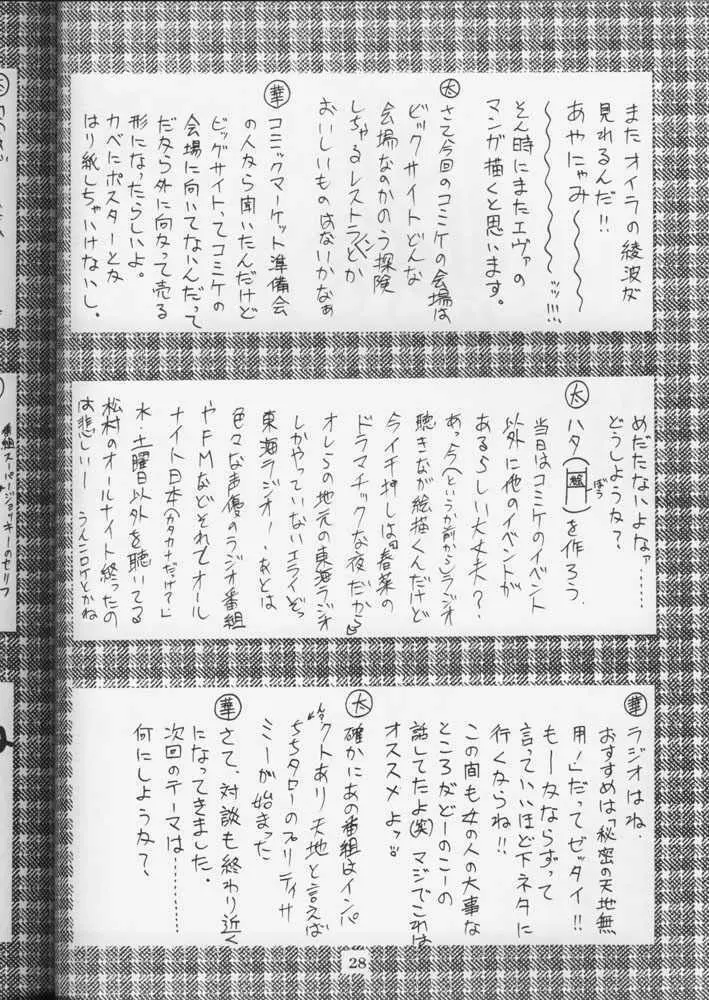 またオイラの綾波が
見れるんだ!!
あやにゃみ〜〜
〜〜〜〜〜ッッ!!!
そん時にまたエヴァの
マンガ描くと思います。
太 さて今回のコミケの会場は
ビックサイトどんな
会場なのかのう探険
しちゃるレストランとか
おいしいものはないかなぁ
華 コミックマーケット準備会
の人から聞いたんだけど
ビッグサイトってコミケの
会場に向いてないんだって
だから外に向かって売る
形になったらしいよ。
カベにポスターとか
はり紙しちゃいけないし。
めだたないよなァ……
どうしようか?
太 ハタ(絵 ぼう)を作ろう.
当日はコミケのイベント
以外に他のイベントが
あるらしい大丈夫?.
あっ今(というか前から)ラジオ
聴きながら絵描くんだけど
今イチ押しは『春菜の
ドラマチックな夜だから』
オレらの地元の東海ラジオ
しかやっていないエライぞっ
東海ラジオ!.あとは
色々な声優のラジオ番組
やFMなどそれでオール
ナイト日本(カタカナだっけ?)
水・土曜日以外を聴いてる
松村のオールナイト終ったの
は悲しいー
華 ラジオはね、
おすすめは「秘密の天地無
用!」だってゼッタイ!!
もーかならずって
言っていいほど下ネタに
行くからね!!
この間も女の人の大事な
ところがどーのこーの
話してたよ(笑)マジでこれは
オススメよッ。
太 確かにあの番組はインパ
クトあり天地と言えば
ちちタローのプリティサ
ミーが始まった
華 さて、対談も終わり近く
になってきました。
次回のテーマは………
何にしようか?
番組スーパージョッキーのセリフ
28